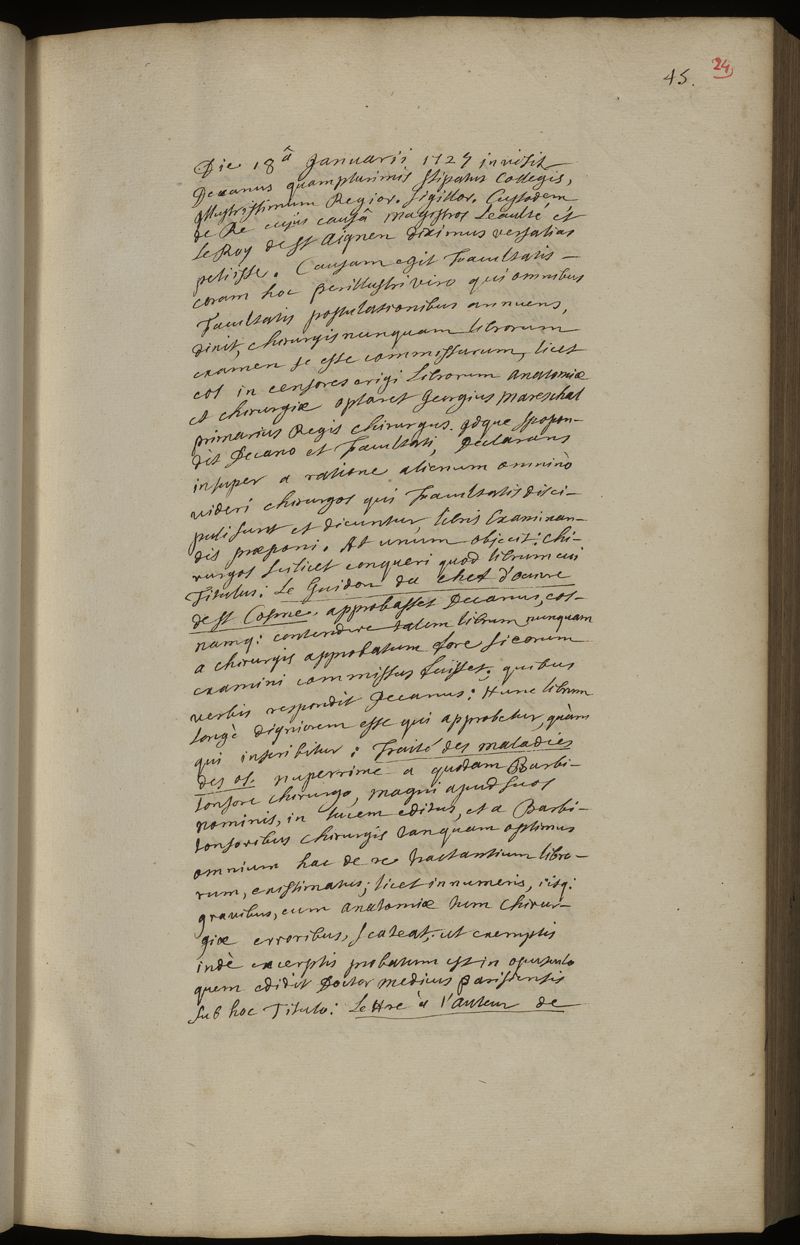 45. 24
Die 18â Januarii 1727 invisit
Decanus quamplurimis stipatus Collegis,
Illustrissimum Regior. Sigillor. Custodem
de Re cujus causâ magistros Leaulté et
LeRoy de St Aignen diximus versalias
petiisse. Causam egit Facultatis
coram hoc perillustri viro qui omnibus
Facultatis postulationibus annuens,
dixit, chirurgis nunquam librorum
examen se esse commissurum, licet
eos in censores erigi Librorum anatomiæ
et chirurgiæ optaret Georgius Mareschal
primarius Regis chirurgus. qdque spopon-
dit Decano et Facultati, Declarans
insuper a ratione alienum omninò
videri chirurgos qui Facultatis disci-
puli sunt et dicuntur, libris Examinan-
dis præponi. At unum objecit: Chi-
rurgos scilicet conqueri quod librum cui
Titulus: Le Guidon du chef d'œuvre
de St Cosme. approbasset Decanus, eos-
namq: contendere talem librum nunquam
a chirurgis approbatum fore si eorum
examini commissus fuisset; quibus
verbis respondit Decanus: Hunc librum
longè digniorem esse qui approbetur, quàm
qui inscribitur: Traité des maladies
des os. nuperrime a quodam Barbi-
tonsore chirurgo, magni apud suos
nominis, in lucem editus, et a Barbi-
tonsoribus chirurgis tanquam optimus
omnium hac de re tractantium libro-
rum, existimatus; licet innumeris, iisq:
gravibus, cum anatomiæ tum Chirur-
giæ erroribus, scateat; ut exemplis
indè excerptis probatum est in opusculo
quem edidit Doctor medicus parisiensis
sub hoc Titulo: Lettre à l'auteur de